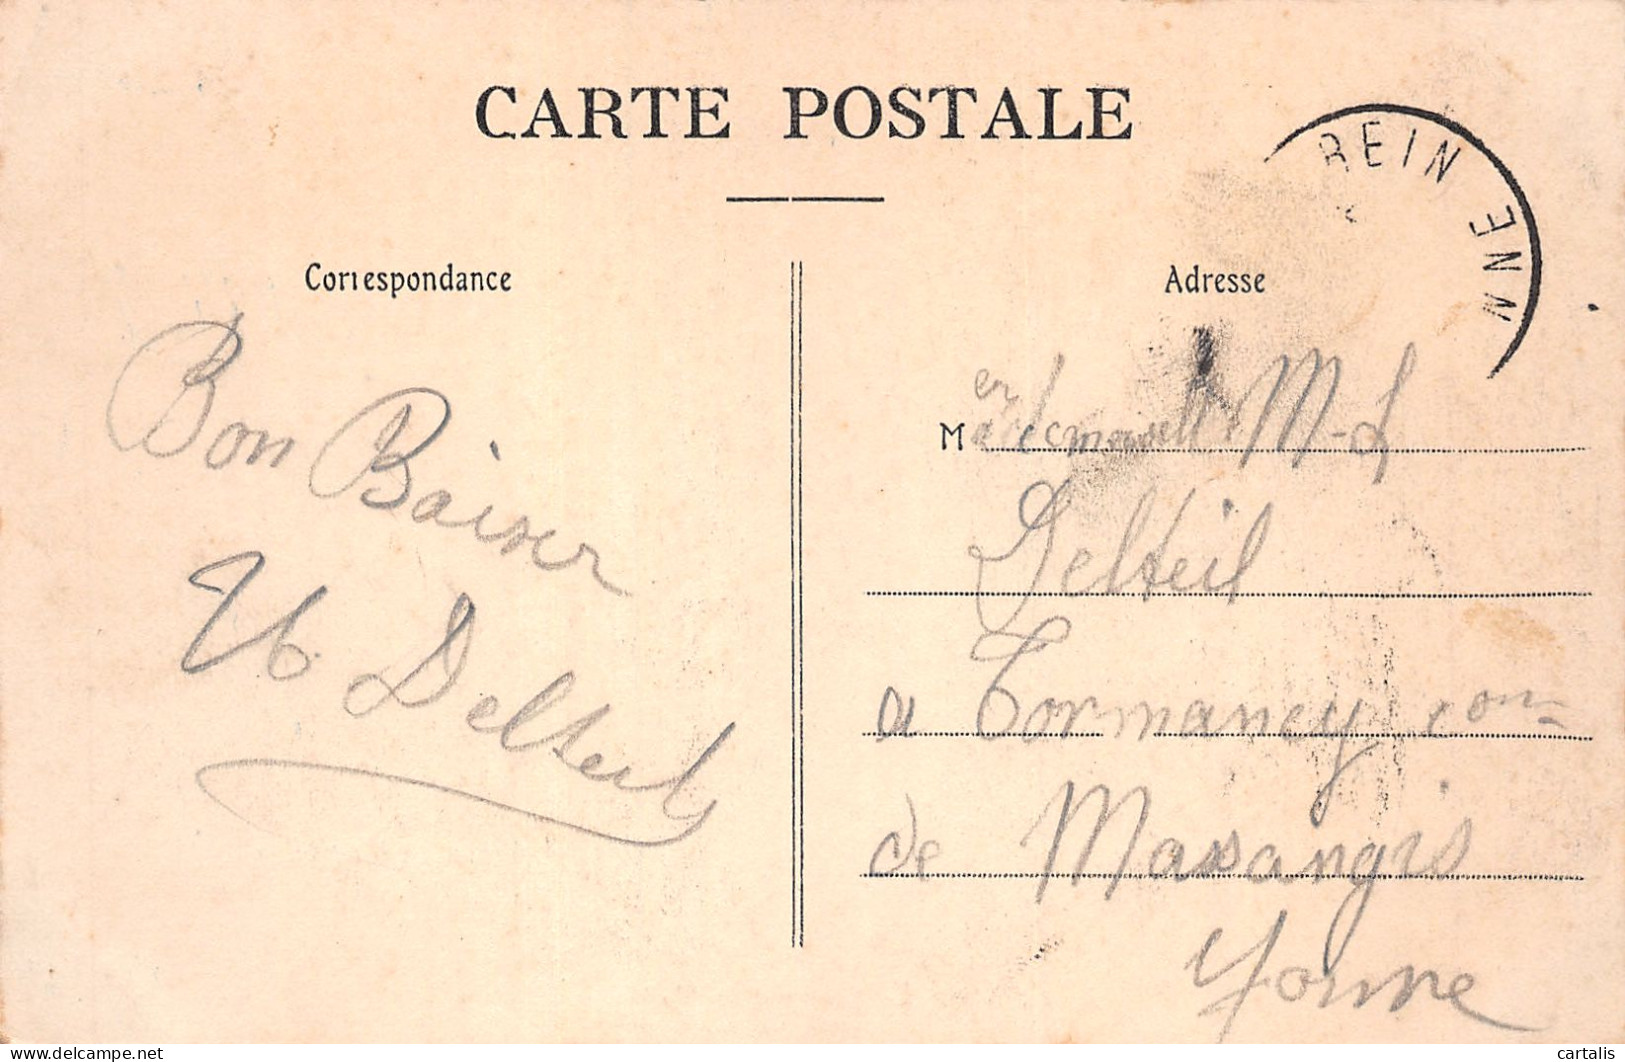 CARTE POSTALE
REIN
NNE
Correspondance
Adresse
Bon Baiser
Delteil
M M-L
Delteil
a Tormancy
de Massangis
Yonne
delcampe.net
cartalis